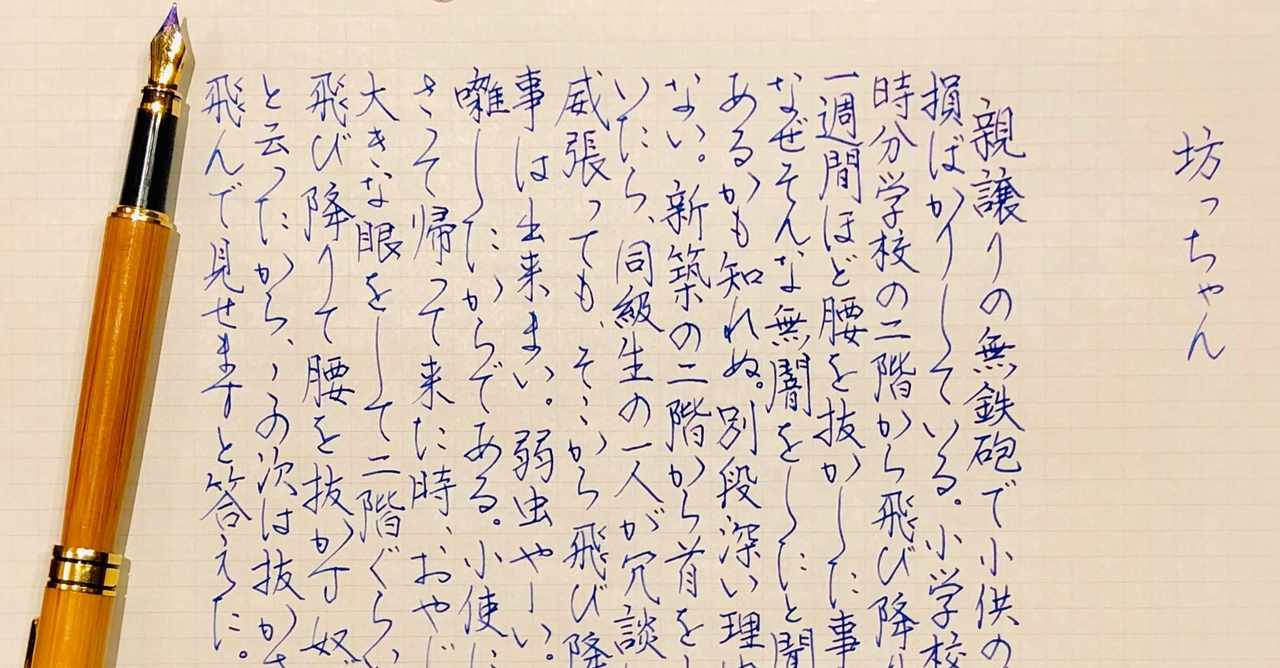 坊っちゃん
親譲りの無鉄砲で小供の
損ばかりしている。小学校
時分学校の二階から飛び降り
一週間ほど腰を抜かした事
なぜそんな無闇をしたと聞
あるかも知れぬ。別段深い理
ない。新築の二階から首を
いたら、同級生の一人が冗談
威張っても、そこから飛び降
事は出来まい。弱虫やーい。
囃したからである。小使に
さって帰って来た時、おやじ
大きな眼をして二階ぐらい
飛び降りて腰を抜かす奴
と云ったから、この次は抜かさ
飛んで見せますと答えた。